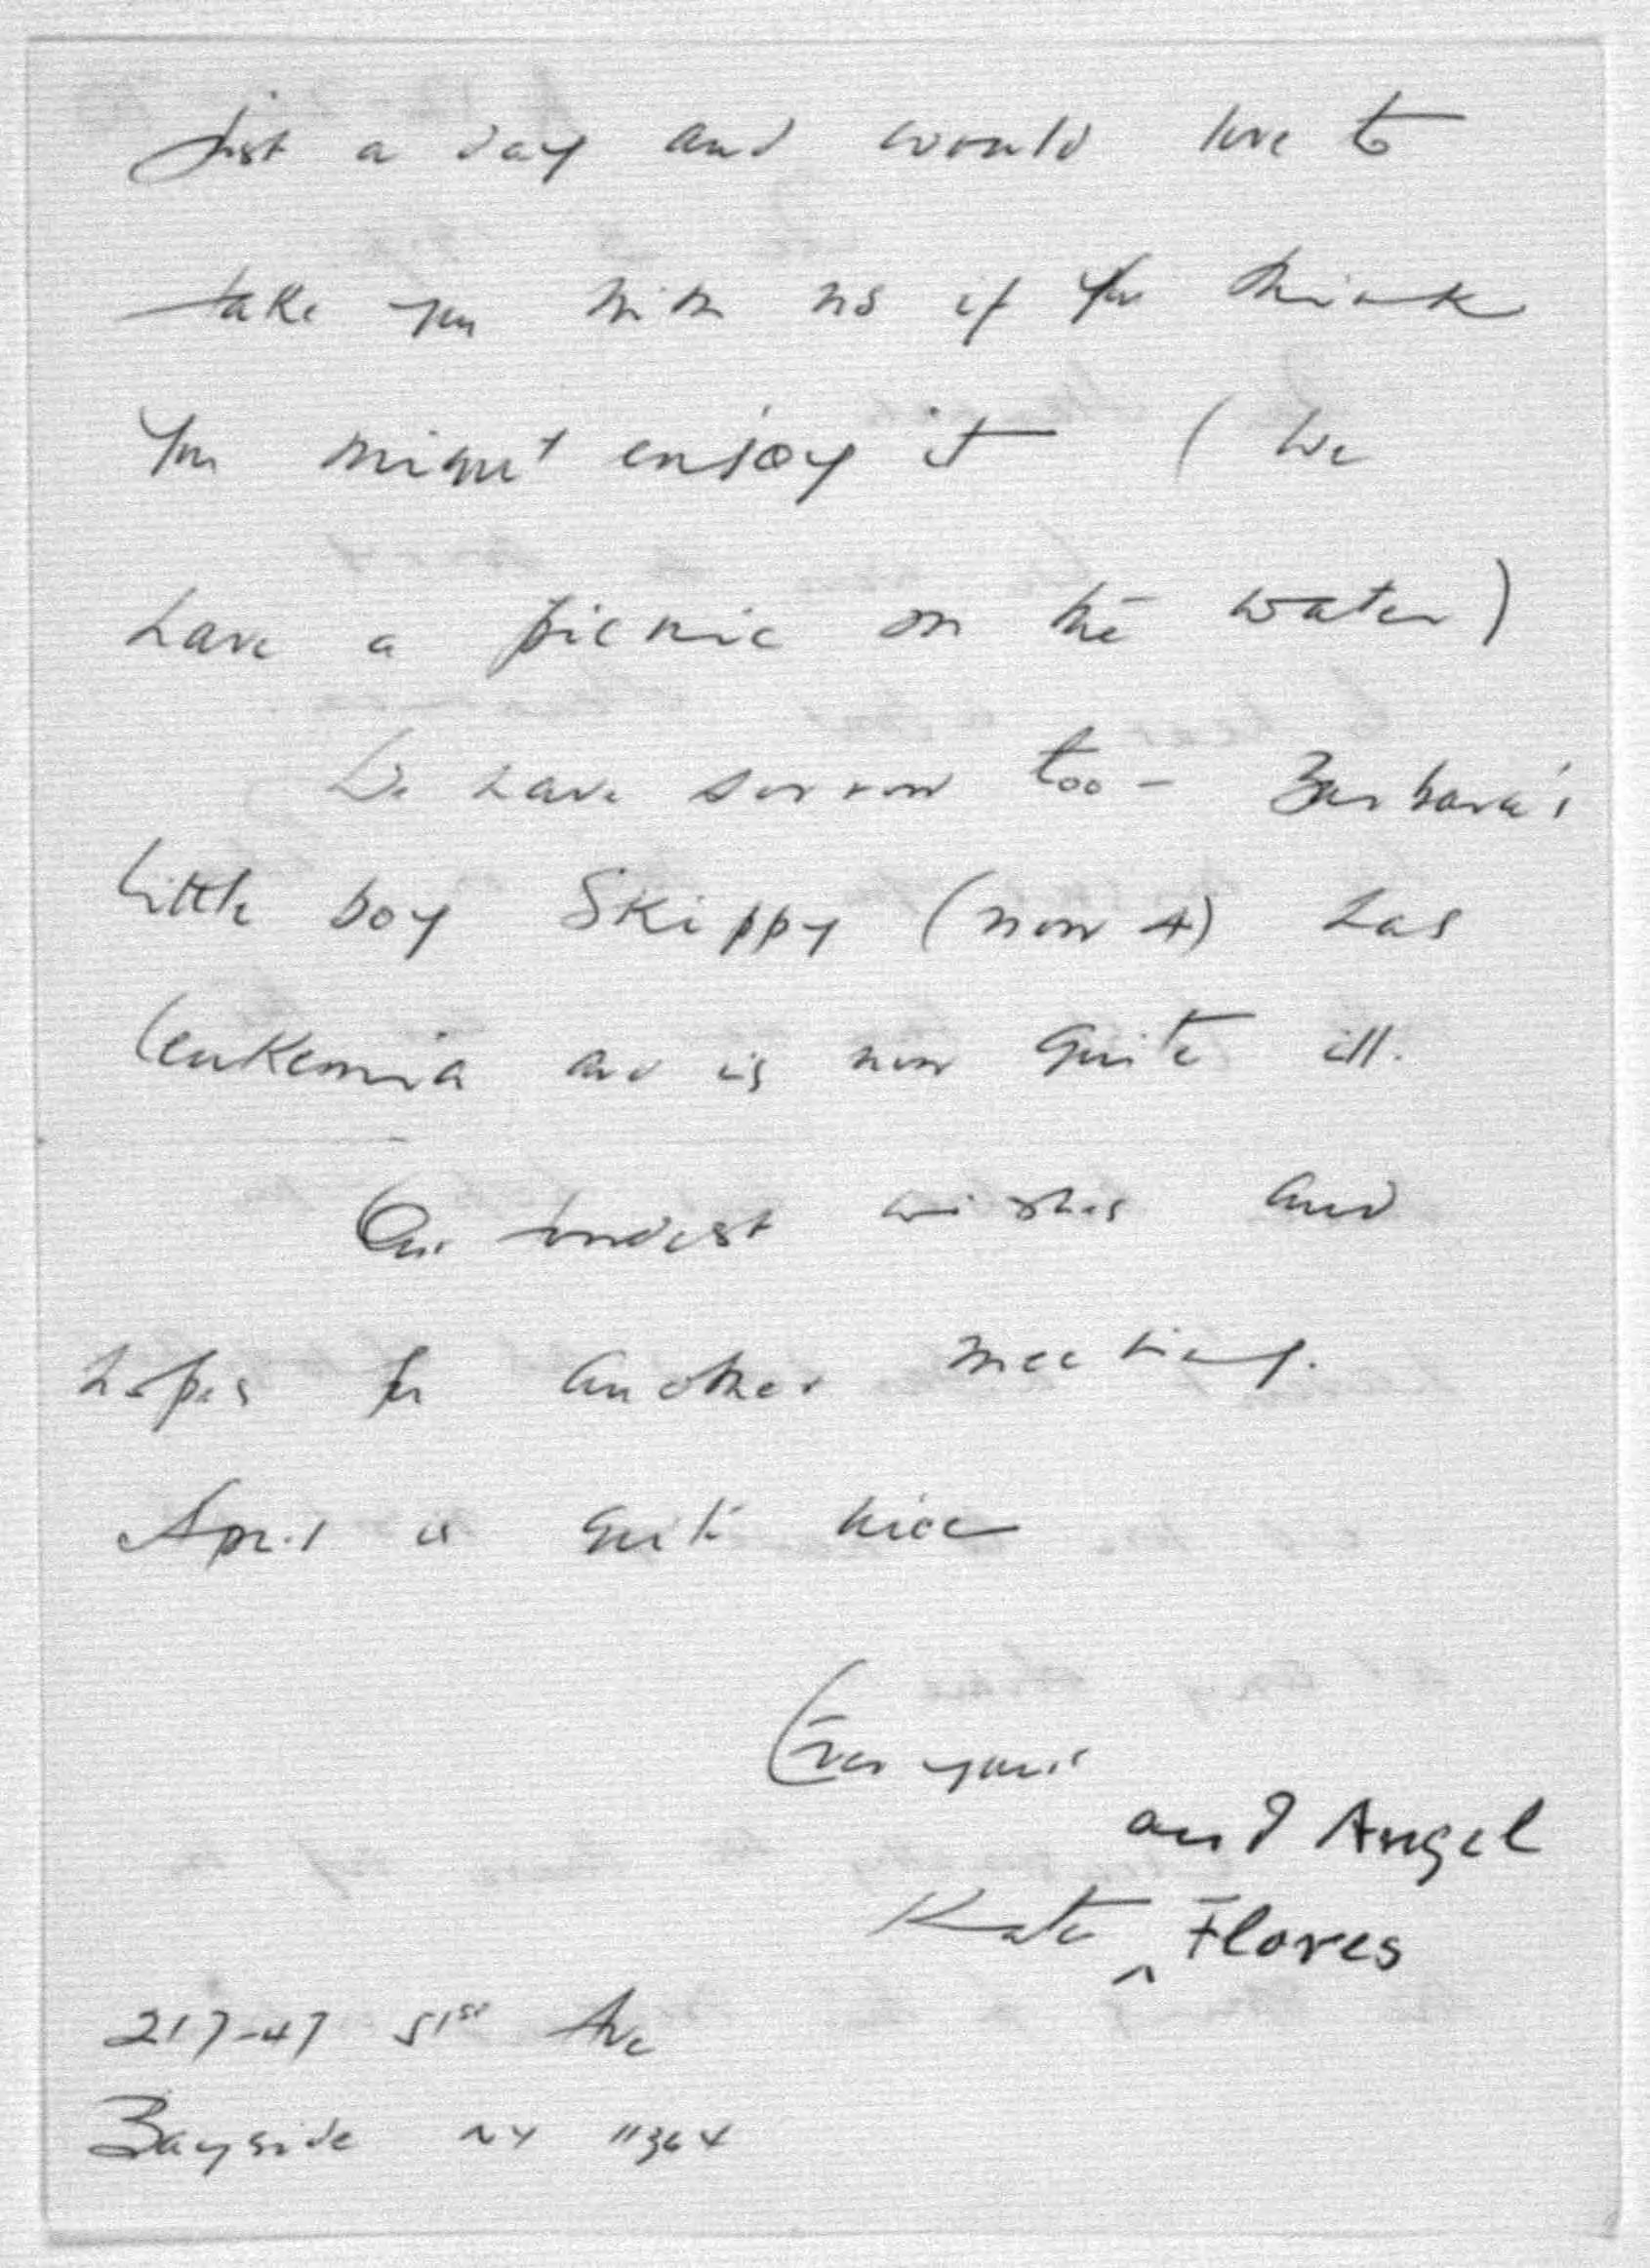 just a day and would love to
take you with us if you think
you might enjoy it (we
have a picnic on the water)
We have sorrow too - Barbara's
little boy Skippy (now 4) has
leukemia and is now quite ill.
Our fondest wishes and
hopes for another meeting.
April is quite nice
Ever yours
and Angel
Kate ^ Flores
217-47 51st Ave
Bayside NY 11364